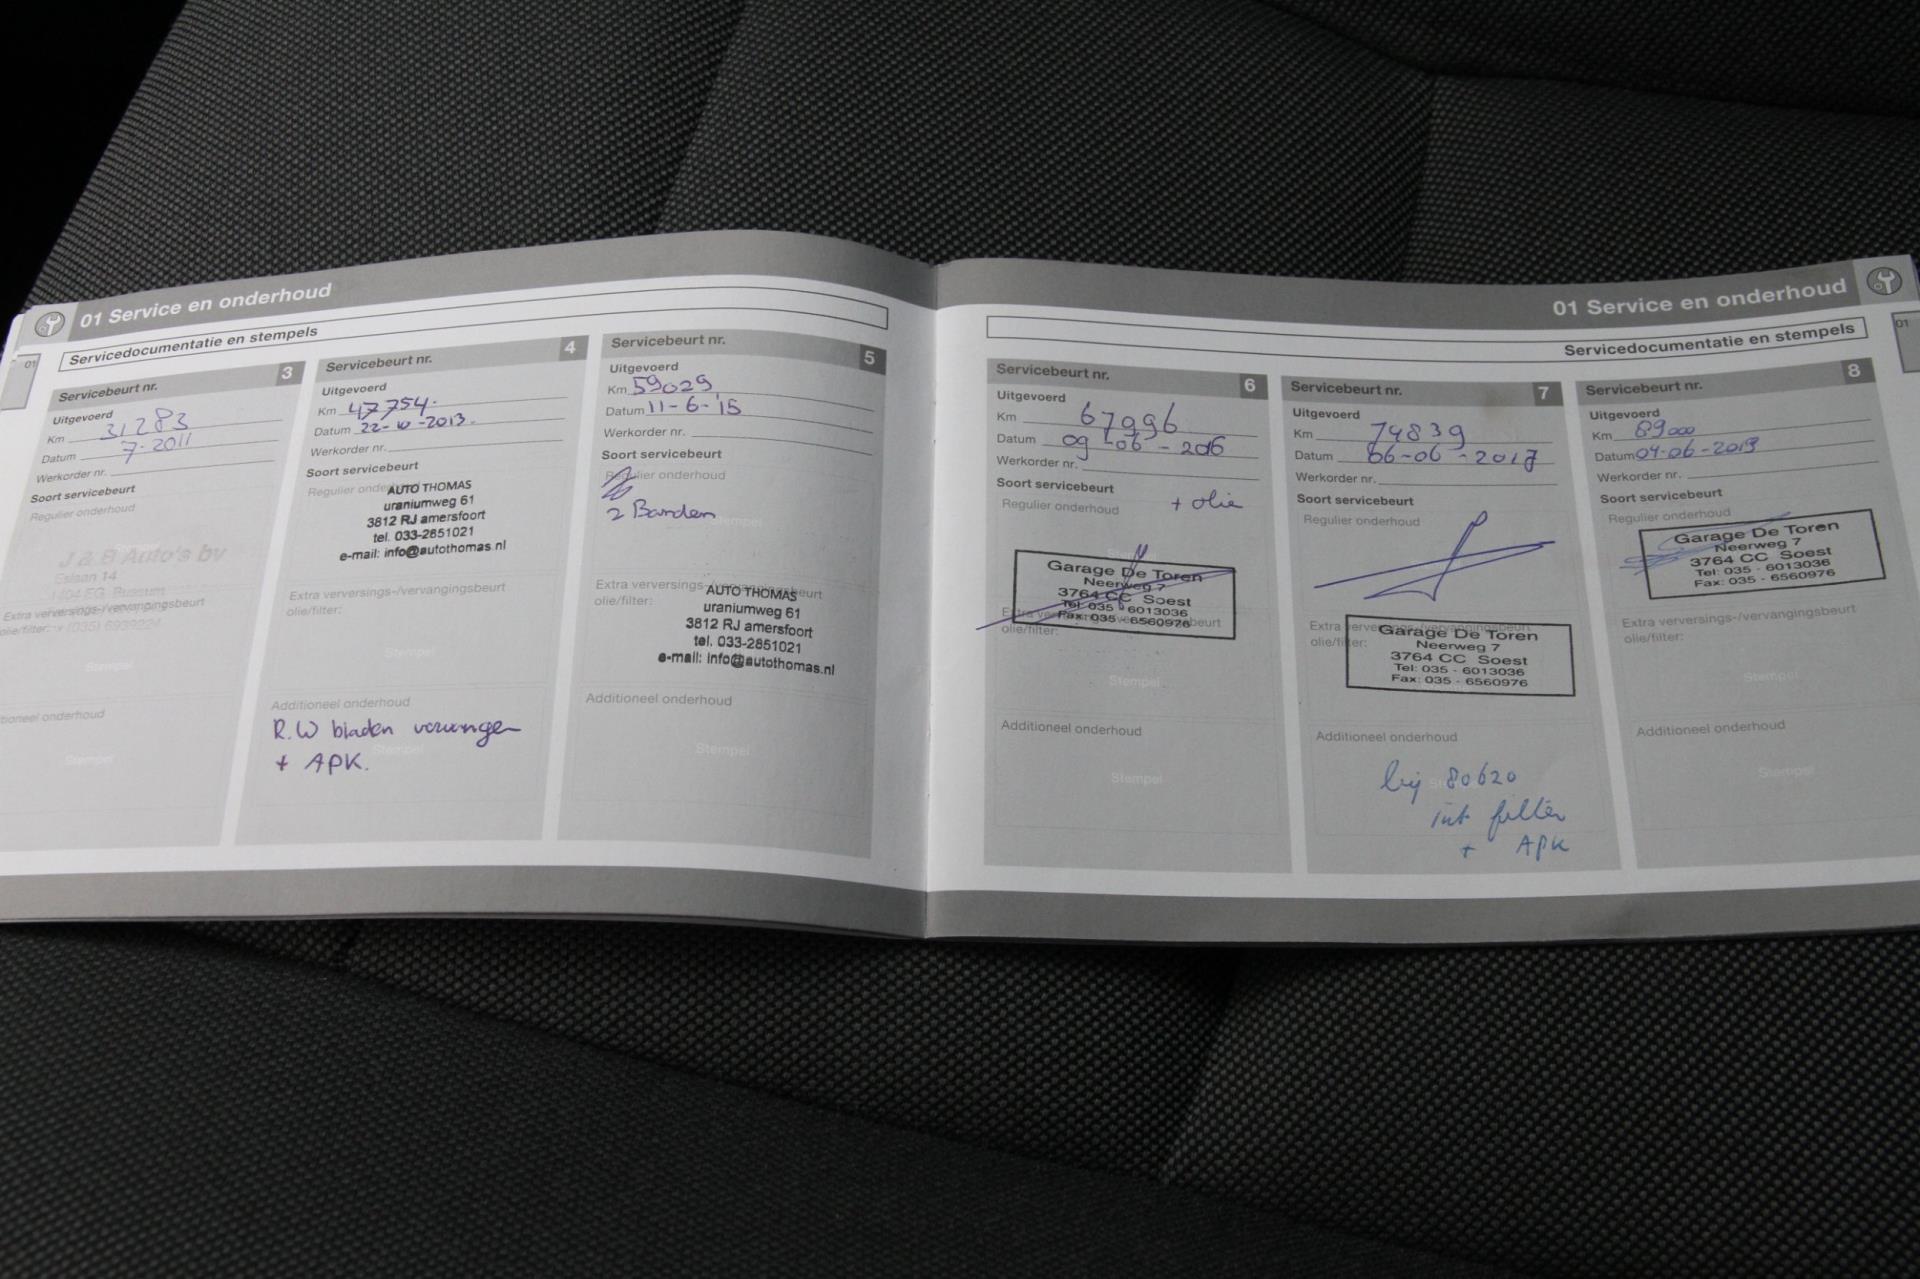 01 Service en onderhoud
Servicedocumentatie en stempels
01
Servicebeurt nr. 3
Uitgevoerd
Km 31283
Datum 7-2011
Werkorder nr.
Soort servicebeurt
Regulier onderhoud
J & B Auto's bv
Eslaan 14
1404 EG Bussum
Extra verversings-/vervangingsbeurt
olie/filter: (035) 6939224
Stempel
tioneel onderhoud
Stempel
Servicebeurt nr. 4
Uitgevoerd
Km 47754.
Datum 22-10-2013.
Werkorder nr.
Soort servicebeurt
Regulier onderhoud
AUTO THOMAS
uraniumweg 61
3812 RJ amersfoort
tel. 033-2851021
e-mail: info@autothomas.nl
Extra verversings-/vervangingsbeurt
olie/filter:
Stempel
Additioneel onderhoud
R.W bladen vervangen
Stempel
+ APK.
Servicebeurt nr. 5
Uitgevoerd
Km 59029
Datum 11-6-15
Werkorder nr.
Soort servicebeurt
Regulier onderhoud
2 Banden
Stempel
Extra verversings-/vervangingsbeurt
olie/filter:
AUTO THOMAS
uraniumweg 61
3812 RJ amersfoort
tel. 033-2851021
e-mail: info@autothomas.nl
Additioneel onderhoud
Stempel
01 Service en onderhoud
Servicedocumentatie en stempels
01
Servicebeurt nr. 6
Uitgevoerd
Km 67996
Datum 09-06-2016
Werkorder nr.
Soort servicebeurt
Regulier onderhoud + olie
Stempel
Garage De Toren
Neerweg 7
3764 CC Soest
Tel: 035 - 6013036
Fax: 035 - 6560976
Extra verversings-/vervangingsbeurt
olie/filter:
Stempel
Additioneel onderhoud
Stempel
Servicebeurt nr. 7
Uitgevoerd
Km 74839
Datum 06-06-2017
Werkorder nr.
Soort servicebeurt
Regulier onderhoud
Extra verversings-/vervangingsbeurt
olie/filter:
Garage De Toren
Neerweg 7
3764 CC Soest
Tel: 035 - 6013036
Fax: 035 - 6560976
Additioneel onderhoud
bij 80620
int filter
+ APK
Servicebeurt nr. 8
Uitgevoerd
Km 89000
Datum 04-06-2019
Werkorder nr.
Soort servicebeurt
Regulier onderhoud
Garage De Toren
Neerweg 7
3764 CC Soest
Tel: 035 - 6013036
Fax: 035 - 6560976
Extra verversings-/vervangingsbeurt
olie/filter:
Stempel
Additioneel onderhoud
Stempel